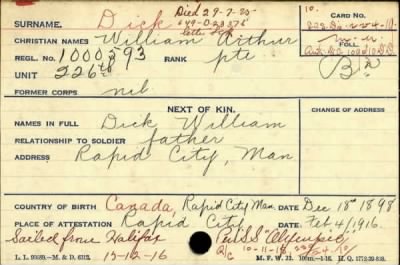 Died 29-7-25
649-D-23376
10.
SURNAME. Dick
CARD No.
CHRISTIAN NAMES William Arthur
REGL. No. 1000593 RANK pte
FOLL.
UNIT 226th
FORMER CORPS nil
NEXT OF KIN.
CHANGE OF ADDRESS
NAMES IN FULL Dick William
RELATIONSHIP TO SOLDIER father
ADDRESS Rapid City, Man
COUNTRY OF BIRTH Canada, Rapid City Man. DATE Dec 18th 1898
PLACE OF ATTESTATION Rapid City DATE Feb 4/1916.
Sailed from Halifax Per S.S. "Olympic"
15-12-16
M. F. W. 22.